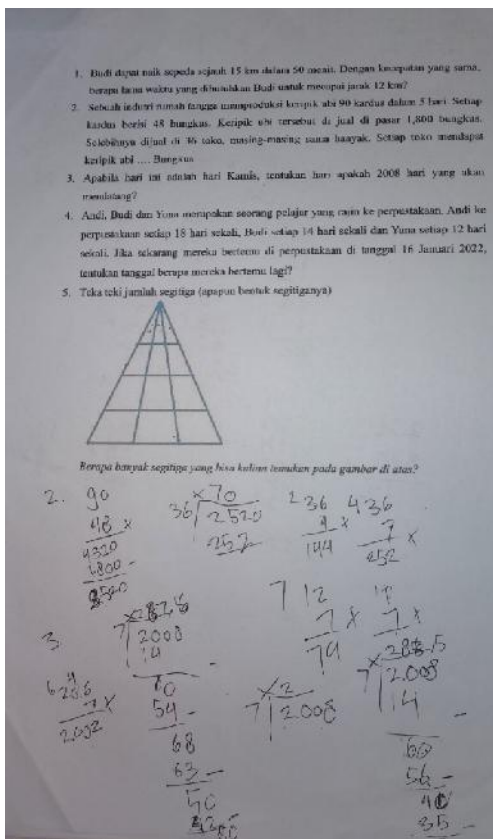 1. Budi dapat naik sepeda sejauh 15 km dalam 50 menit. Dengan kecepatan yang sama,
berapa lama waktu yang dibutuhkan Budi untuk mencapai jarak 12 km?
2. Sebuah industri rumah tangga memproduksi keripik ubi 90 kardus dalam 5 hari. Setiap
kardus berisi 48 bungkus. Keripik ubi tersebut di jual di pasar 1,800 bungkus.
Selebihnya dijual di 36 toko, masing-masing sama banyak. Setiap toko mendapat
keripik ubi .... Bungkus
3. Apabila hari ini adalah hari Kamis, tentukan hari apakah 2008 hari yang akan
mendatang?
4. Andi, Budi dan Yuna merupakan seorang pelajar yang rajin ke perpustakaan. Andi ke
perpustakaan setiap 18 hari sekali, Budi setiap 14 hari sekali dan Yuna setiap 12 hari
sekali. Jika sekarang mereka bertemu di perpustakaan di tanggal 16 Januari 2022,
tentukan tanggal berapa mereka bertemu lagi?
5. Teka teki jumlah segitiga (apapun bentuk segitiganya)
Berapa banyak segitiga yang bisa kalian temukan pada gambar di atas?
2. 90
48 ×
4320
1800 -
2520
× 70
36 2520
252
2 36
4 ×
144
4 36
7 ×
252
3.
7 2008
14
54 -
68
63 -
50
7 12
7 ×
74
7 ×
× 2
7 2.008
7 2.008
14 -
60
56 -
40
35 -